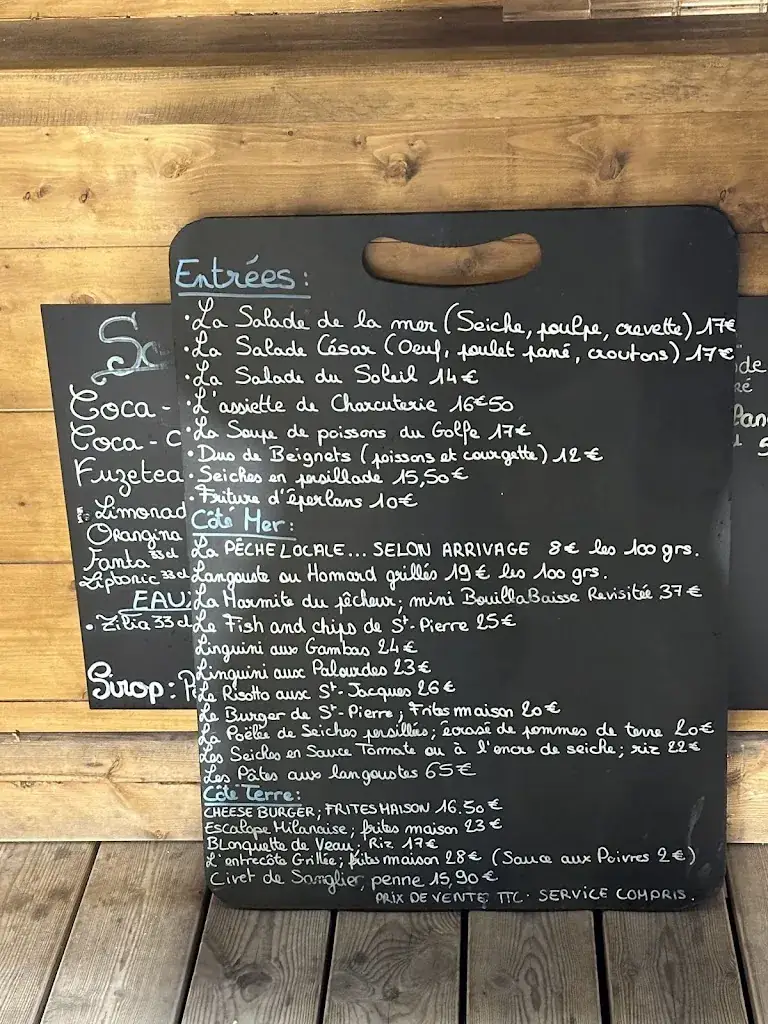 Entrées :
• La Salade de la mer (Seiche, poulpe, crevette) 17€
• La Salade César (Oeuf, poulet pané, croutons) 17€
• La Salade du Soleil 14€
• L'assiette de Charcuterie 16€50
• La Soupe de poissons du Golfe 17€
• Duo de Beignets (poissons et courgette) 12€
• Seiches en persillade 15,50€
• Friture d'éperlans 10€
Côté Mer :
La PÊCHE LOCALE... SELON ARRIVAGE 8€ les 100 grs.
Langouste ou Homard grillés 19€ les 100 grs.
La Marmite du pêcheur; mini BouillaBaisse Revisitée 37€
Le Fish and chips de St-Pierre 25€
Linguini aux Gambas 24€
Linguini aux Palourdes 23€
Le Risotto aux St-Jacques 26€
Le Burger de St-Pierre; Frites maison 20€
La Poêlée de Seiches persillées; écrasé de pommes de terre 20€
Les Seiches en Sauce Tomate ou à l'encre de seiche; riz 22€
Les Pâtes aux langoustes 65€
Côté Terre :
CHEESE BURGER; FRITES MAISON 16.50€
Escalope Milanaise; frites maison 23€
Blanquette de Veau; Riz 17€
L'entrecôte Grillée; frites maison 28€ (Sauce aux Poivres 2€)
Civet de Sanglier, penne 15,90€
PRIX DE VENTE TTC. SERVICE COMPRIS.
So
Coca -
Coca - C
Fuzetea
Limonad
Orangina
Fanta 33cl
Liptonic 33cl
EAU
• Zilia 33cl
Sirop : P
de
ré
5